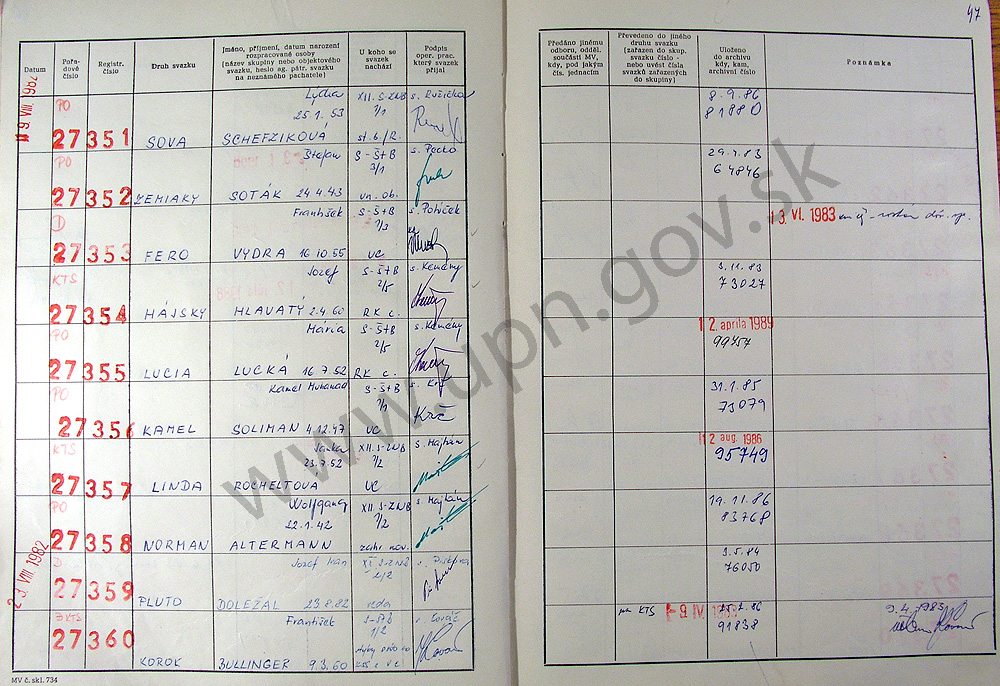 47
Datum
Pořadové číslo
Registr. číslo
Druh svazku
Jméno, příjmení, datum narození rozpracované osoby
(název skupiny nebo objektového
svazku, heslo ag. pátr. svazku
na neznámého pachatele)
U koho se
svazek
nachází
Podpis
oper. prac.
který svazek
přijal
Předáno jinému
odboru, odděl.
součásti MV,
kdy, pod jakým
čís. jednacím
Převedeno do jiného
druhu svazku
(zařazen do skup.
svazku číslo -
nebo uvést čísla
svazků zařazených
do skupiny)
Uloženo
do archivu
kdy, kam,
archivní číslo
Poznámka
9 VIII. 1982
PO Lýdia XII. S-ZNB s. Ružička 8.9.86
25.1.53 7/1 81880
27 351 SOVA SCHEFZIKOVÁ
PO Štefan S-ŠtB s. Pecko 29.7.83
3/1 64846
27 352 ZEMIAKY SOTÁK 24.4.43 vn. ob.
D František S-ŠtB 13. VI. 1983
7/3
27 353 FERO VYDRA 16.10.55 VC
KTS Jozef S-ŠtB s. Kemény 3.11.83
2/5 73027
27 354 HÁJSKY HLAVATÝ 2.4.60 RK c.
PO Mária S-ŠtB s. Kemény 12. apríla 1989
2/5 99457
27 355 LUCIA LUCKÁ 16.7.52 RK c.
PO Kamel Muhamad S-ŠtB 31.1.85
7/1 73079
27 356 KAMEL SOLIMAN 4.12.47 VC
KTS XII. S-ZNB s. Majtán 12 aug. 1986
23.7.52 7/2 95749
27 357 LINDA ROCHELTOVA VC
PO Wolfgang XII. S-ZNB s. Majtán 19.11.86
22.1.42 7/2 83768
27 358 NORMAN ALTERMANN zahr. nov.
23 VIII 1982
D Jozef Ivan 3.5.84
76050
27 359 PLUTO DOLEŽAL 23.8.82 veda
KTS František 1/2 s. Kováč na KTS 9 IV 9.4.1983
91838
27 360 KOROK BULLINGER 9.3.60
MV č. skl. 734
www.upn.gov.sk